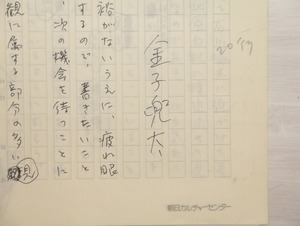 2019
金子兜太
裕がないうえに、疲れ眼
するので、書きたいこと
、次の機会を待つことに
観に属する部分の多い
朝日カルチャーセンター